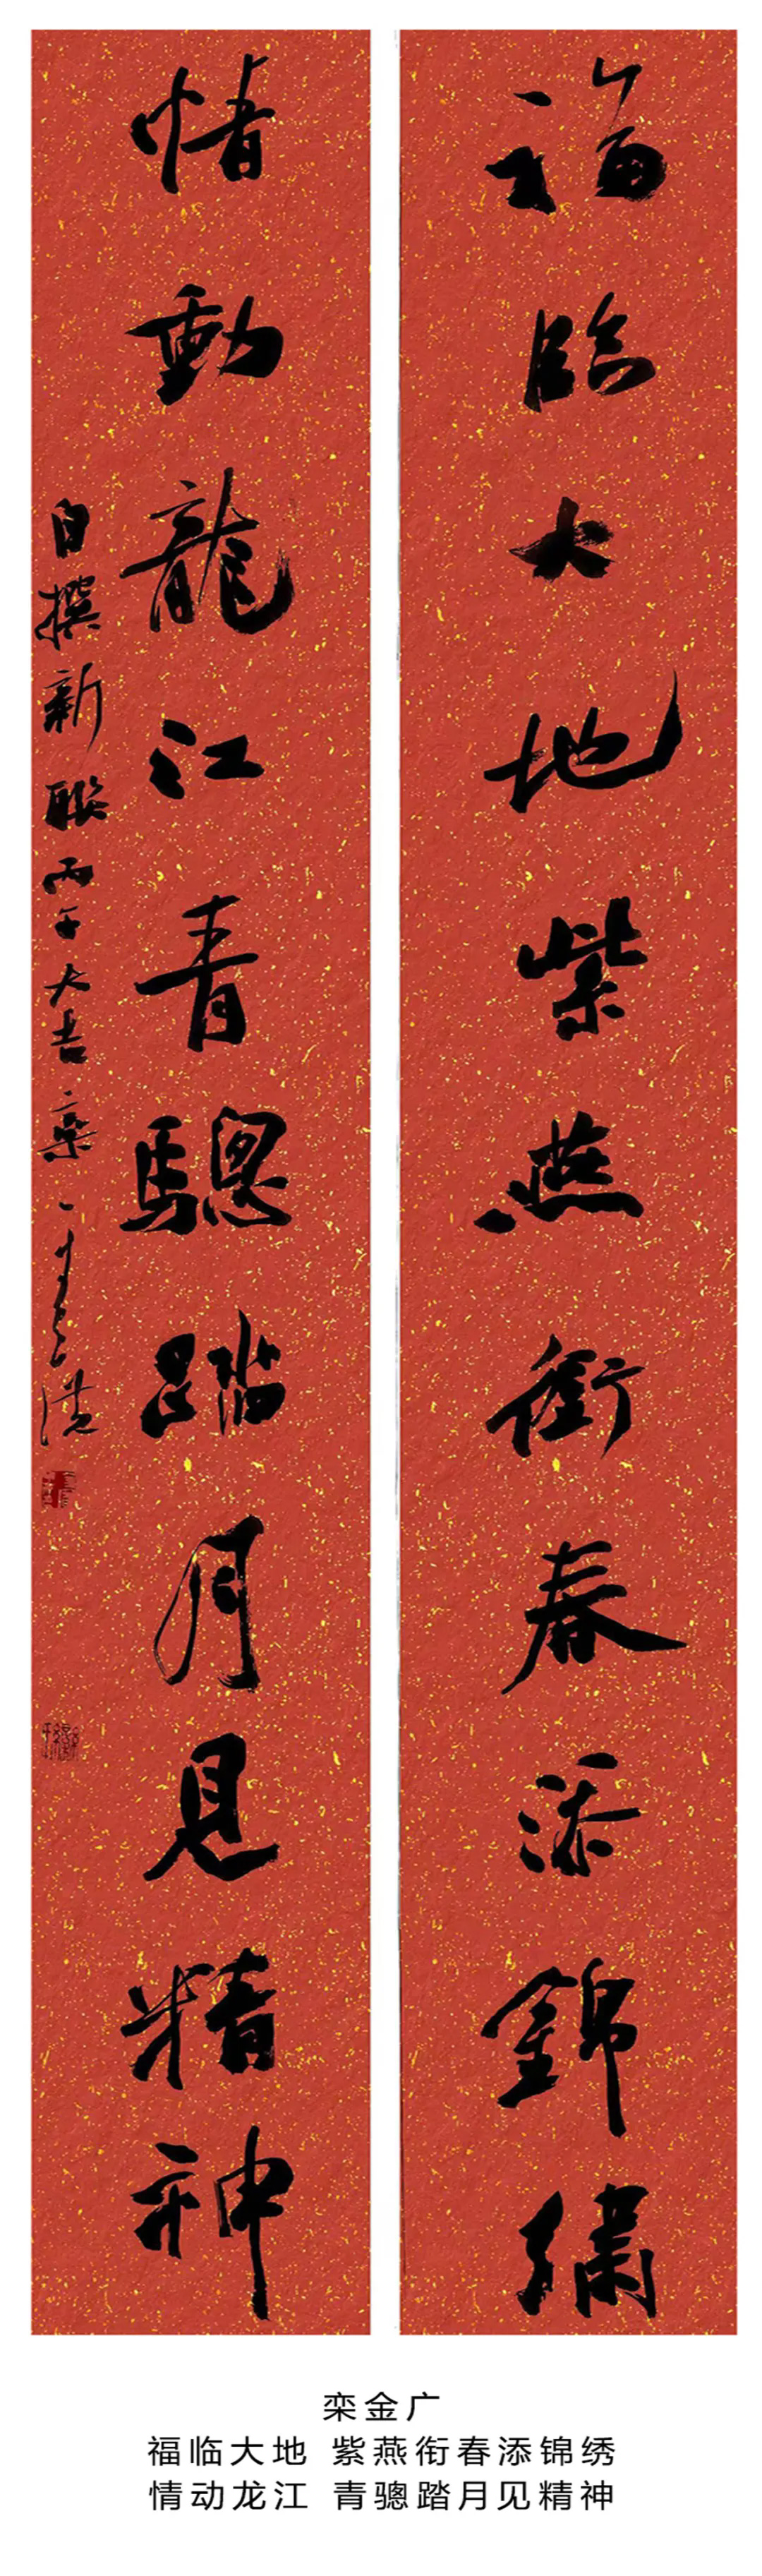 福臨大地紫燕銜春添錦繡
情動龍江青驄踏月見精神
自撰新聯丙午大吉欒
栾金广
福临大地 紫燕衔春添锦绣
情动龙江 青骢踏月见精神